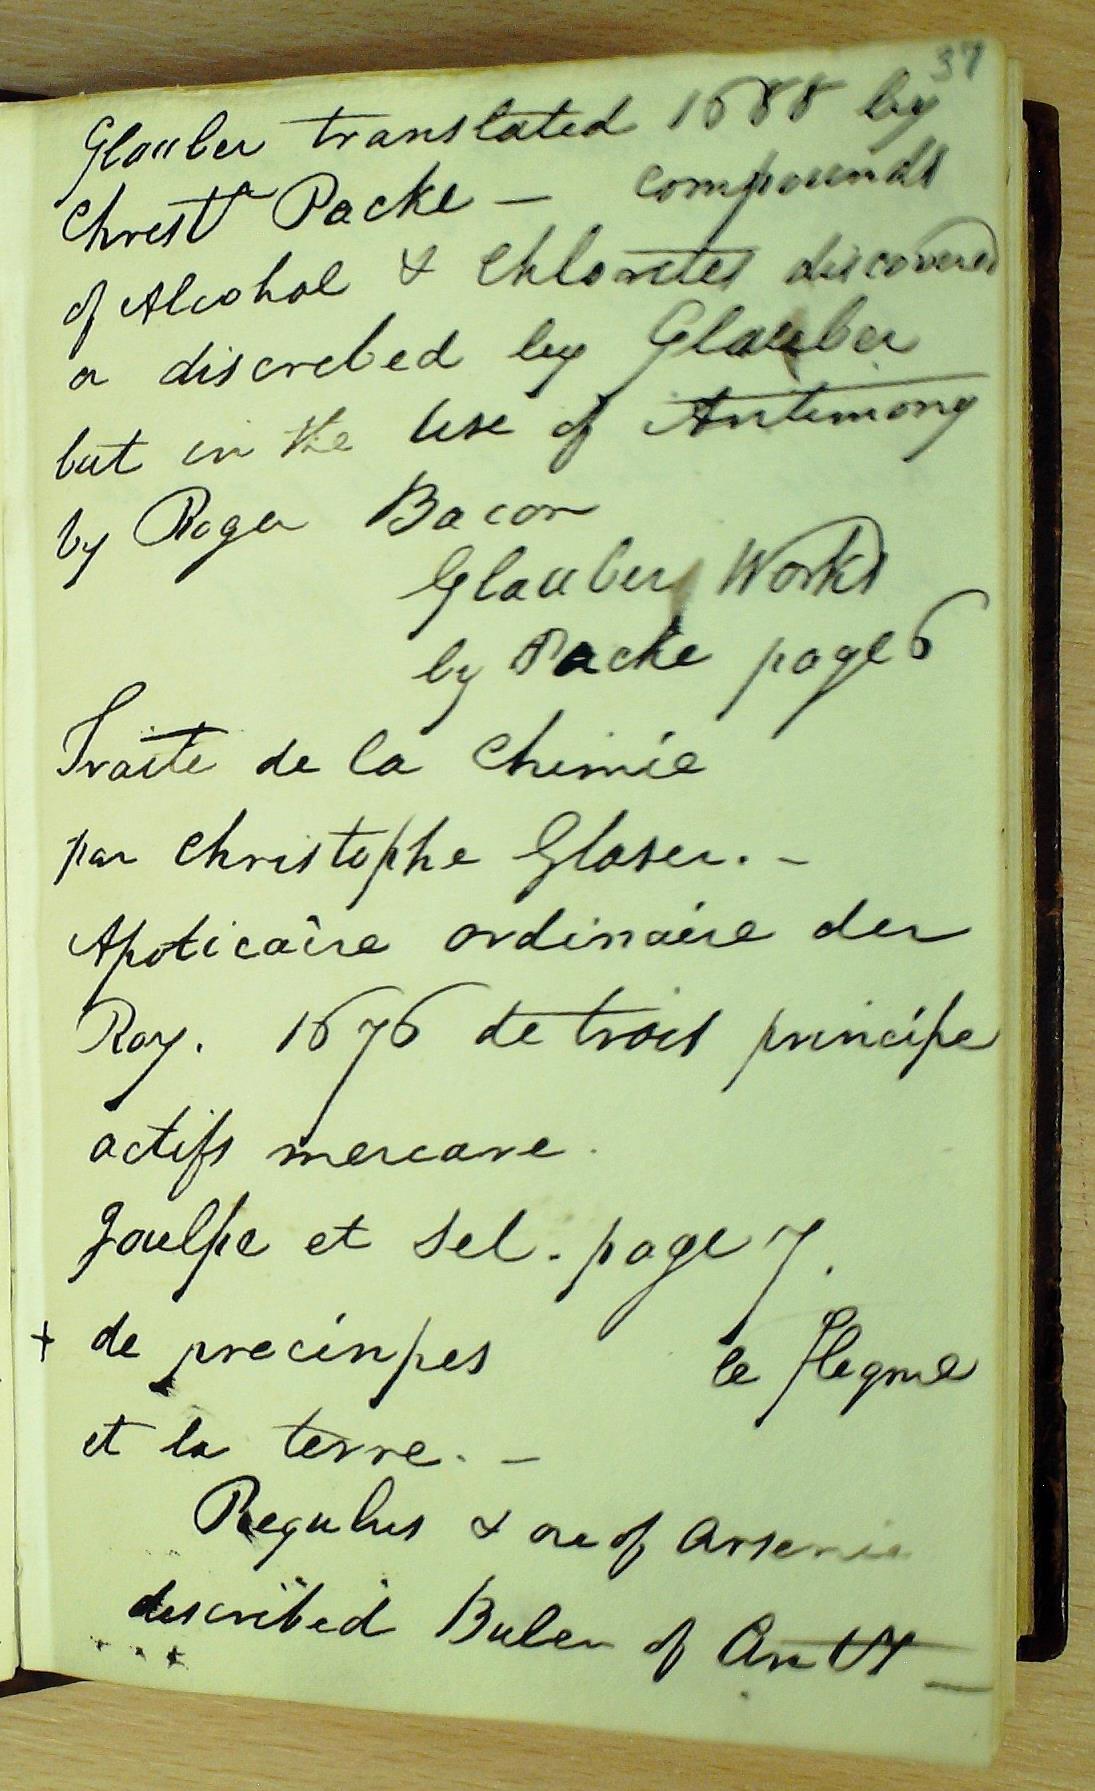 37
Glauber translated 1688 by
Christr Packe - compounds
of Alcohol & Chlorites discovered
or discrebed by Glauber
but in the use of Antimony
by Roger Bacon
Glaubers Works
by Packe page 6
Traite de la Chimie
par Christophe Glaser. -
Apoticaire ordinaire der
Roy. 1676 de trois principe
actifs mercare.
Soulpe et sel. page 7.
+ de precinpes le flegme
et la terre. -
Regulus & ore of Arsenic
described Buler of